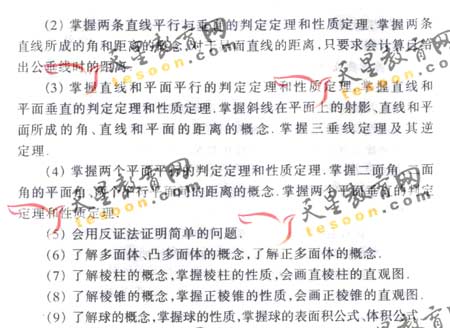 (2) 掌握两条直线平行与垂直的判定定理和性质定理.掌握两条
直线所成的角和距离的概念.对于异面直线的距离,只要求会计算已给
出公垂线时的距离.
(3) 掌握直线和平面平行的判定定理和性质定理.掌握直线和
平面垂直的判定定理和性质定理.掌握斜线在平面上的射影、直线和平
面所成的角、直线和平面的距离的概念.掌握三垂线定理及其逆
定理.
(4) 掌握两个平面平行的判定定理和性质定理.掌握二面角、二面
角的平面角、两个平行平面间的距离的概念.掌握两个平面垂直的判定
定理和性质定理.
(5) 会用反证法证明简单的问题.
(6) 了解多面体、凸多面体的概念,了解正多面体的概念.
(7) 了解棱柱的概念,掌握棱柱的性质,会画直棱柱的直观图.
(8) 了解棱锥的概念,掌握正棱锥的性质,会画正棱锥的直观图.
(9) 了解球的概念,掌握球的性质,掌握球的表面积公式、体积公式.
天星教育网
tesoon.com
天星教育网
tesoon.com
天星教育网
tesoon.com
天星教育网
tesoon.com